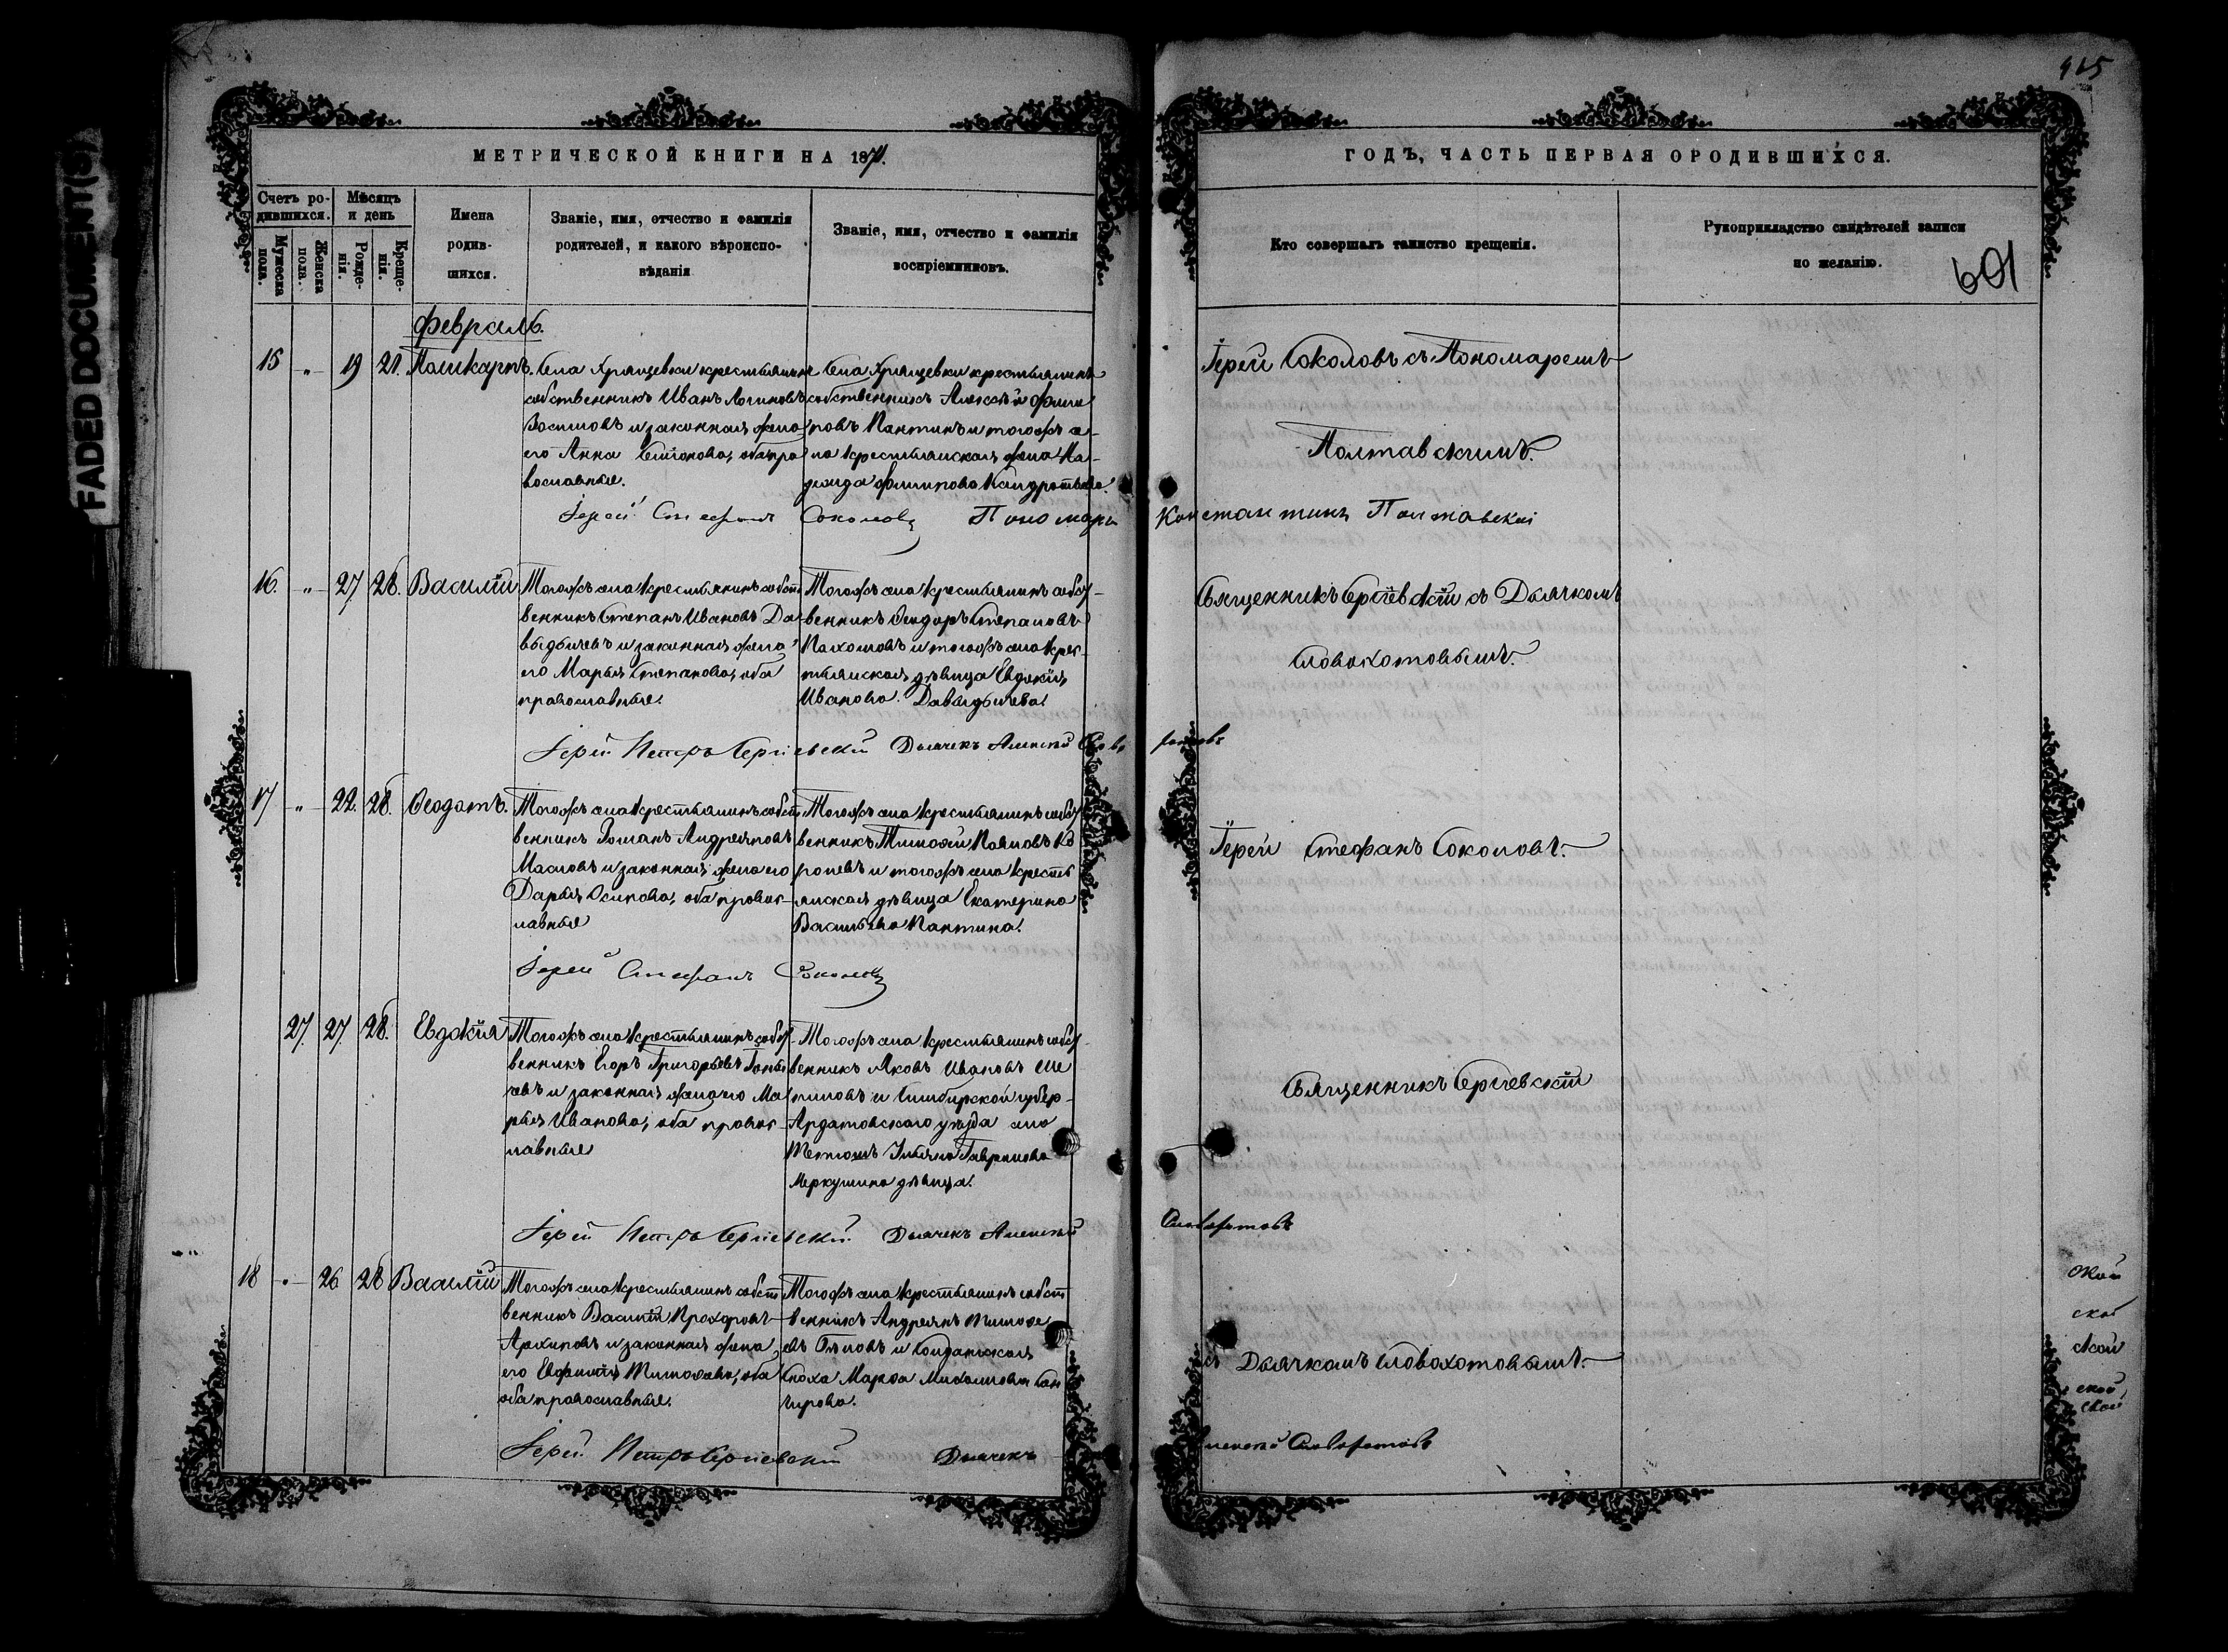 FADED DOCUMENT(S)
415
МЕТРИЧЕСКОЙ КНИГИ НА 1871.
ГОДЪ, ЧАСТЬ ПЕРВАЯ О РОДИВШИХСЯ.
Счетъ ро-
дившихся.
Мужеска
пола.
Женска
пола.
Мѣсяцъ
и день
Рожде-
нія.
Креще-
нія.
Имена
родив-
шихся.
Званіе, имя, отчество и фамилія
родителей, и какого вѣроиспо-
вѣданія
Званіе, имя, отчество и фамилія
воспріемниковъ.
Кто совершалъ таинство крещенія.
Рукоприкладство свидѣтелей записи
по желанію.
601
Февраль.
15 " 19 21.
Села Хрящевки крестьянинъ
собственникъ Иванъ Логиновъ
и законная жена
его Анна обапра
вославные.
Села Хрящевки крестьянинъ
собственникъ Алексѣй Фили
повъ Пантинъ и тогожъ се-
ла крестьянская жена На-
дежда Филипова
Іерей Соколовъ съ Пономаремъ
Полтавскимъ.
Іерей Стефанъ Соколовъ Пономарь Константинъ Полтавскій
16. " 27 28. Василій
Тогожъ села крестьянинъ собст
венникъ Степанъ Ивановъ Да-
выдычевъ и законная жена
его Марья Степанова, оба
православные.
Тогожъ села крестьянинъ собст-
венникъ Ѳеодоръ Степановъ
Пахомовъ и тогожъ села крес-
тьянская дѣвица Евдокія
Иванова Давыдычева.
Священникъ Сергіевскій съ Дьячкомъ
Словохотовымъ.
Іерей Петръ Сергіевскій Дьячекъ Алексѣй Словохотовъ
17 " 22. 28. Ѳеодотъ.
Тогожъ села крестьянинъ собст
венникъ Романъ Андреяновъ
Масловъ и законная жена его
Дарья Осипова, оба правос-
лавные
Тогожъ села крестьянинъ собст
венникъ Тимоѳей Павловъ Ко
ролевъ и тогожъ села кресть
янская дѣвица Екатерина
Васильева Пантина.
Іерей Стефанъ Соколовъ.
Іерей Стефанъ Соколовъ
27. 27. 28. Евдокія
Тогожъ села крестьянинъ собст-
венникъ Егоръ Григорьевъ
и законная жена его Ма
рья Иванова, оба правос-
лавные
Тогожъ села крестьянинъ собст
венникъ Яковъ Ивановъ Ше
пиловъ и Симбирской губер-
Ардатовскаго уѣзда села
Гаврилова
Меркушина дѣвица.
Священникъ Сергіевскій
Іерей Петръ Сергіевскій Дьячекъ Алексѣй Словохотовъ
18 " 26 28 Василій
Тогожъ села крестьянинъ собст
венникъ Василій Прохоровъ
Архиповъ и законная жена
его Евфимія Тимоѳеева, оба
оба православные.
Тогожъ села крестьянинъ собст
венникъ Андреянъ Тимоѳе
евъ и Солдатская
сноха Марѳа
съ Дьячкомъ Словохотовымъ.
Іерей Петръ Сергіевскій Дьячекъ Алексѣй Словохотовъ
ской
ской
ской
ской